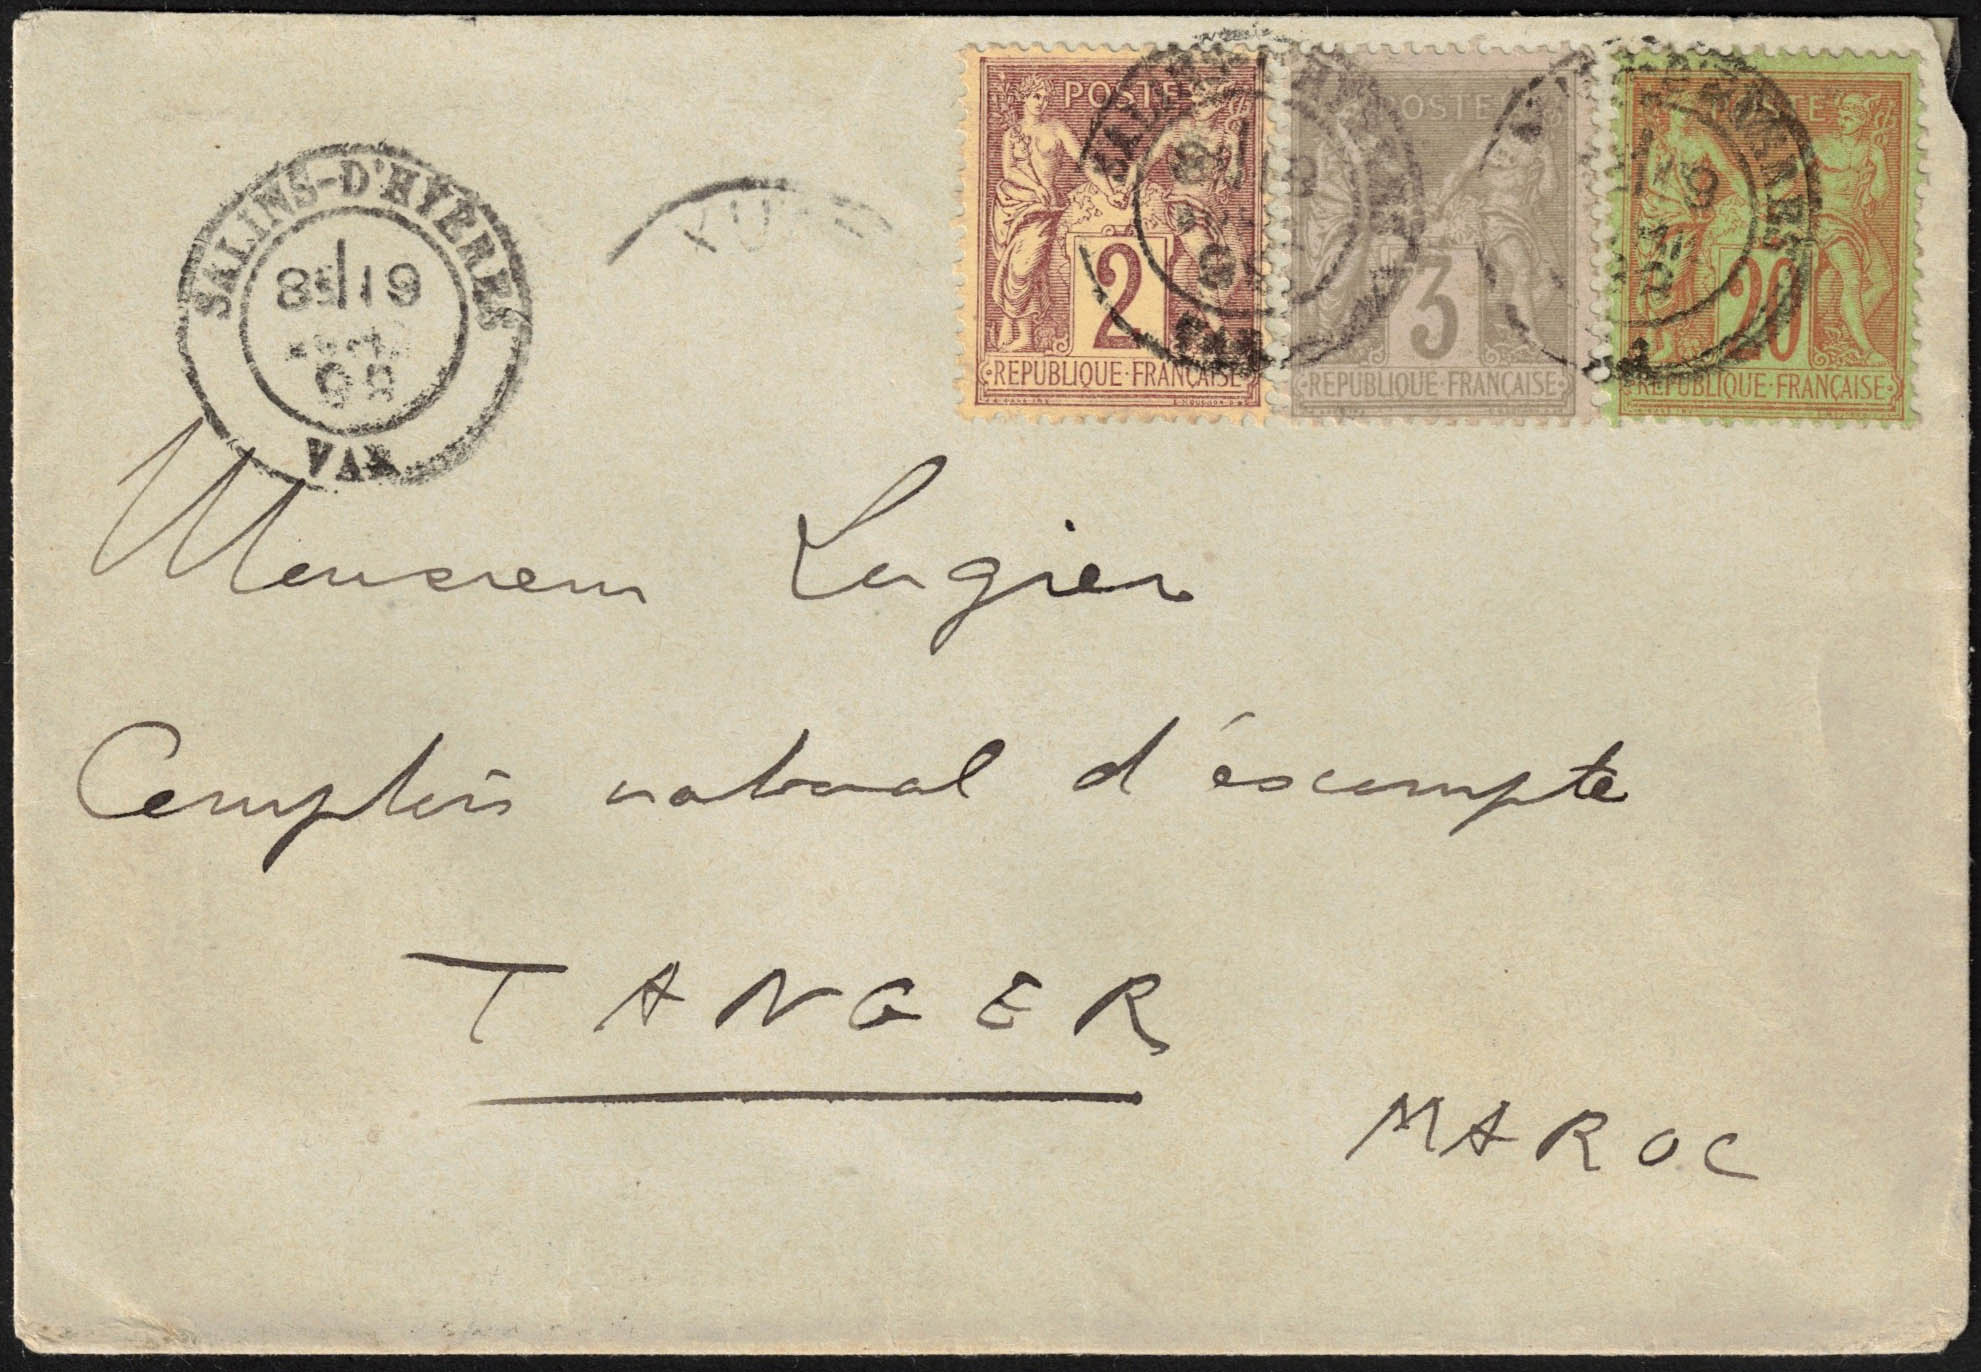 SALINS-D'HYERES
8E 19
98
VAR
POSTE
2
REPUBLIQUE·FRANÇAISE
POSTE
3
REPUBLIQUE·FRANÇAISE
POSTE
20
REPUBLIQUE·FRANÇAISE
Monsieur Lugier
Comptoir national d'escompte
TANGER
MAROC